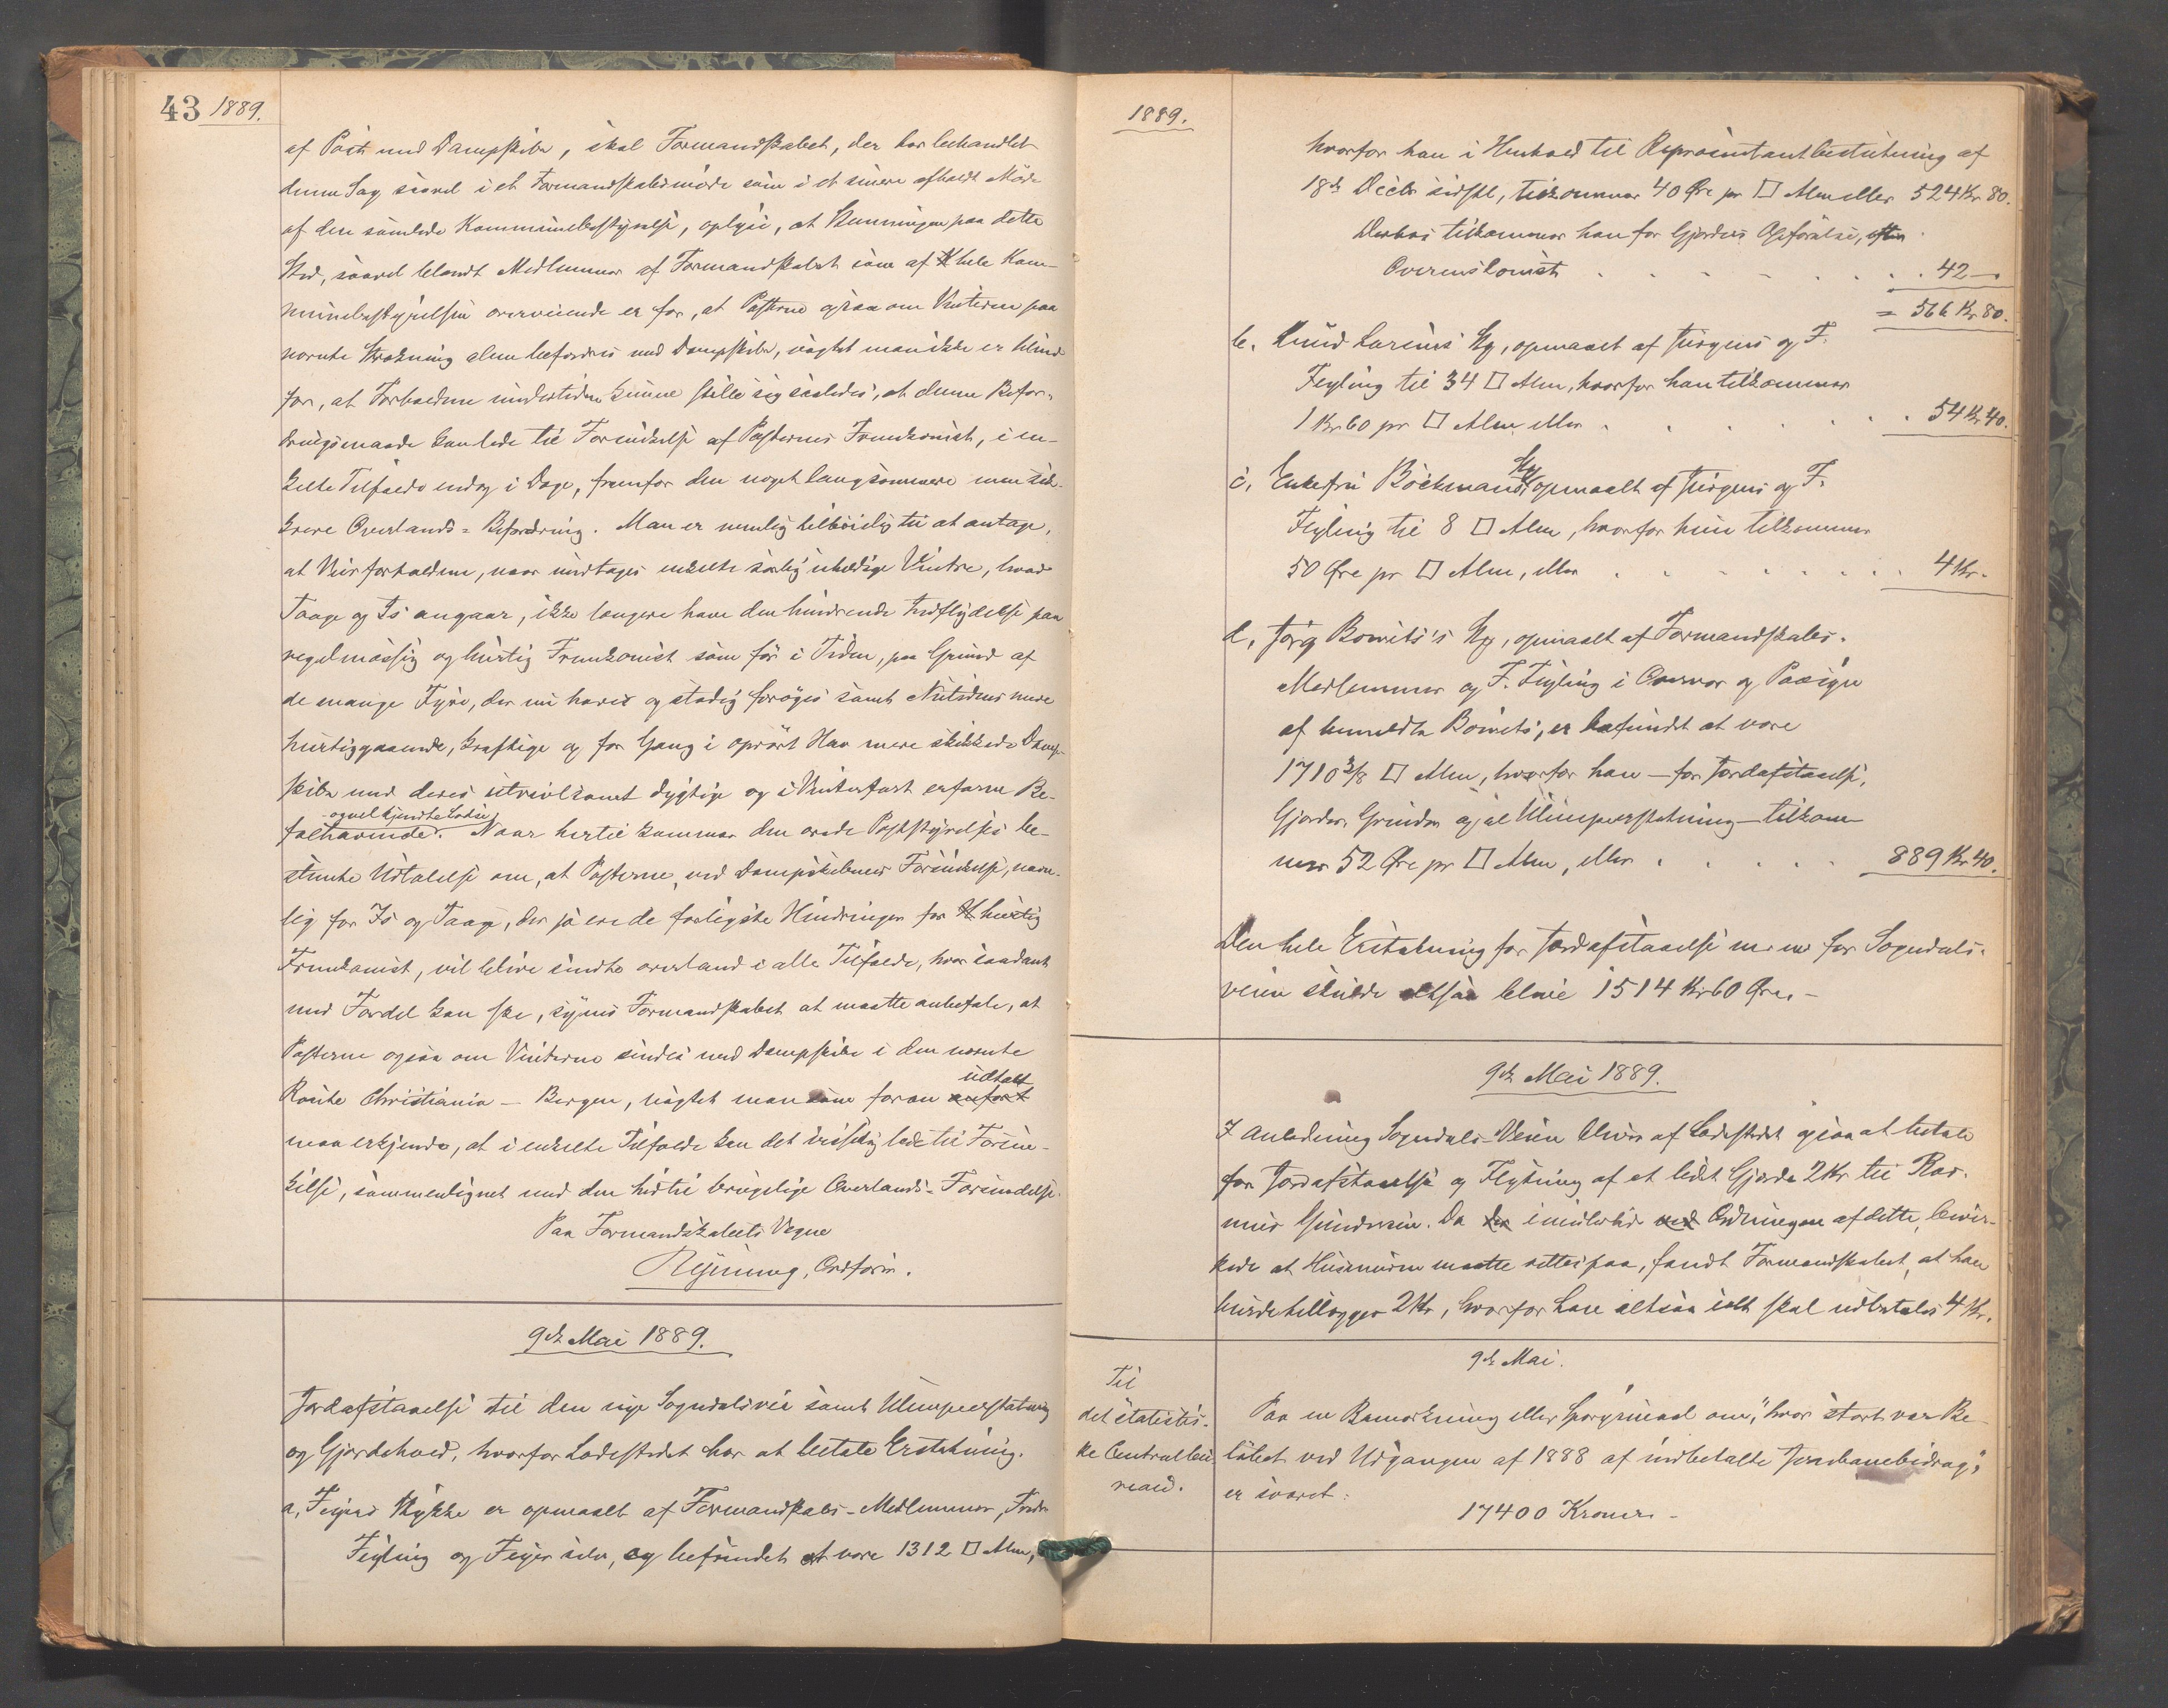 43 1889.
af Post med Dampskibe, skal Formandskabet, der har behandlet
denne Sag saavel i et Formandskabsmøde som i et senere afholdt Møde
af den samlede Kommunebestyrelse, oplyse, at Stemningen paa dette
Sted, saavel blandt Medlemmer af Formandskabet som af hele Kom-
munebestyrelsen overveiende er for, at Posterne ogsaa om Vinteren paa
nævnte Strækning alene befordres med Dampskibe, uagtet man ikke er blind
for, at Forholdene undertiden kunne stille sig saaledes, at denne Befor-
dringsmaade kan lede til Forsinkelse af Posternes Fremkomst, i en-
kelte Tilfælde endog i Dage, fremfor den noget langsommere men sik-
krere Overlands-Befordring. Man er nemlig tilbøielig til at antage,
at Veirforholdene, naar undtages enkelte særlig uheldige Vintre, hvad
Taage og Is angaar, ikke længere have den hindrende Indflydelse paa
regelmæssig og hurtig Fremkomst som før i Tiden, paa Grund af
de mange Fyre, der nu haves og stadig forøges samt Nutidens mere
hurtiggaaende, kraftige og for Gang i oprørt Hav mere skikkede Damp-
skibe med deres utvivlsomt dygtige og i Vinterfart erfarne Be-
og vel kjendte Lodser
falhavende. Naar hertil kommer den ærede Poststyrelses be-
stemte Udtalelse om, at Posterne, ved Dampskibenes Forsinkelse, navn-
lig for Is og Taage, der jo ere de farligste Hindringer for hurtig
Fremkomst, vil blive sendte overland i alle Tilfælde, hvor saadant
med Fordel kan ske, synes Formandskabet at maatte anbefale, at
Posterne ogsaa om Vinteren sendes med Dampskibe i den nævnte
udtalt
Route Christiania - Bergen, uagtet man som foran anført
maa erkjende, at i enkelte Tilfælde kan det visselig lede til Forsin-
kelse, sammenlignet med den hidtil brugelige Overlands-Forsendelse.
Paa Formandskabets Vegne
Ordfører.
9de Mai 1889.
Jordafstaaelse til den nye Sogndalsvei samt Ulempeerstatning
og Gjordehold, hvorfor Ladestedet har at betale Erstatning.
a, Feyers Stykke er opmaalt af Formandskabs-Medlemmer, Fredr
Feyling og Feyer selv, og befundet at være 1312 □ Alen,
1889.
hvorfor han i Henhold til Repræsentantbeslutning af
18de Decbr sidstl, tilkommer 40 Øre pr □ Alen eller 524 Kr 80.
Derhos tilkommer han for Gjerders Opførelse, efter
Overenskomst . . . . . . . 42 -
= 566 Kr 80.
b. Knud Larsens Stg, opmaalt af Jørgens og F.
Feyling til 34 □ Alen, hvorfor han tilkommer
1 Kr 60 pr □ Alen eller . . . . . . . 54 Kr 40.
Stg
c, Enkefru Böckmans opmaalt af Jørgens og F.
Feyling til 8 □ Alen, hvorfor hun tilkommer
50 Øre pr □ Alen, eller . . . . . . . 4 Kr.
d, Jørg Bowitz's Stg, opmaalt af Formandskabs-
Medlemmer og F. Feyling i Overvær og Paasyn
af bemeldte Bowitz, er befundet at være
1710 3/8 □ Alen, hvorfor han - for Jordafstaaelse,
Gjerder, Grinder og al Ulempeerstatning - tilkom-
mer 52 Øre pr □ Alen, eller . . . . . 889 Kr 40.
Den hele Erstatning for Jordafstaaelse m m for Sogndals-
veien skulde altsaa blive 1514 Kr 60 Øre. -
9de Mai 1889.
I Anledning Sogndals-Veien bliver af Ladestedet ogsaa at betale
for Jordafstaaelse og Flytning af et lidet Gjerde 2 Kr til Ras-
mus Gundersen. Da der imidlertid ved Ordningen af dette, bevir-
kede at Husmuren maatte rettes paa, fandt Formandskabet, at han
burde tillægges 2 Kr, hvorfor han altsaa ialt skal udbetales 4 Kr.
9de Mai.
Til
det statistis-
ke Centralbu-
reau.
Paa en Bemærkning eller Spørgsmaal om, "hvor stort var Be-
løbet ved Udgangen af 1888 af indbetalte Jernbanebidrag,"
er svaret:
17400 Kroner. -